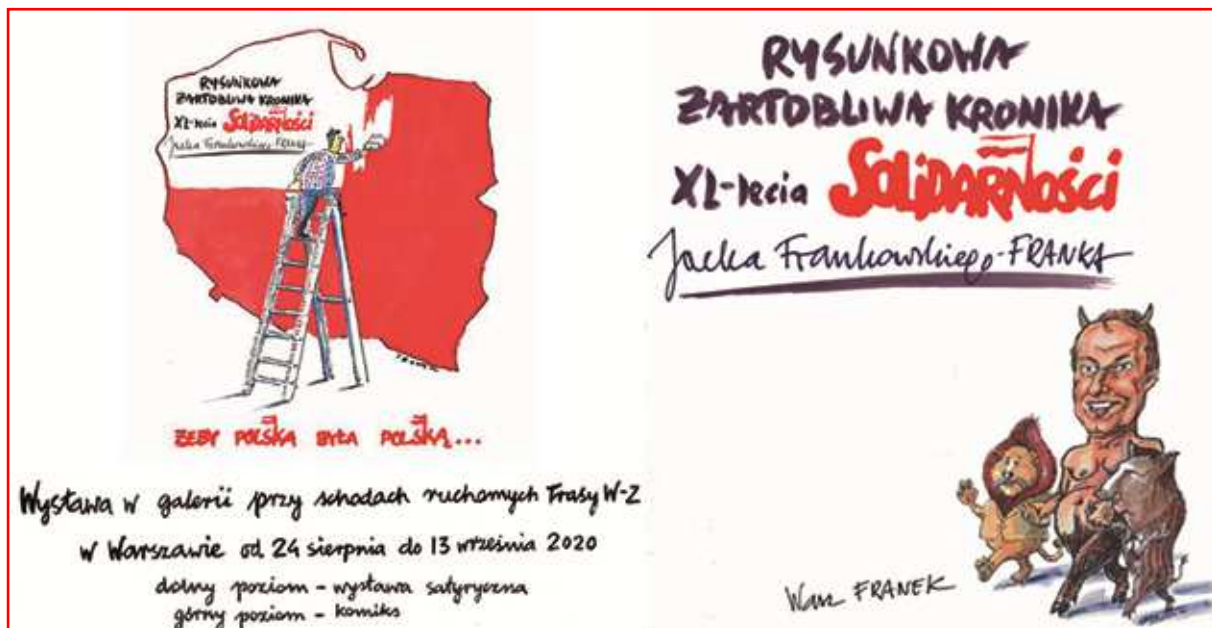 RYSUNKOWA
ŻARTOBLIWA KRONIKA
XL-lecia SOLIDARNOŚCI
Jacka Frankowskiego-FRANKA
FRANEK
ŻEBY POLSKA BYŁA POLSKĄ...
Wystawa w galerii przy schodach ruchomych Trasy W-Z
w Warszawie od 24 sierpnia do 13 września 2020
dolny poziom - wystawa satyryczna
górny poziom - komiks
RYSUNKOWA
ŻARTOBLIWA KRONIKA
XL-lecia SOLIDARNOŚCI
Jacka Frankowskiego-FRANKA
Wasz FRANEK